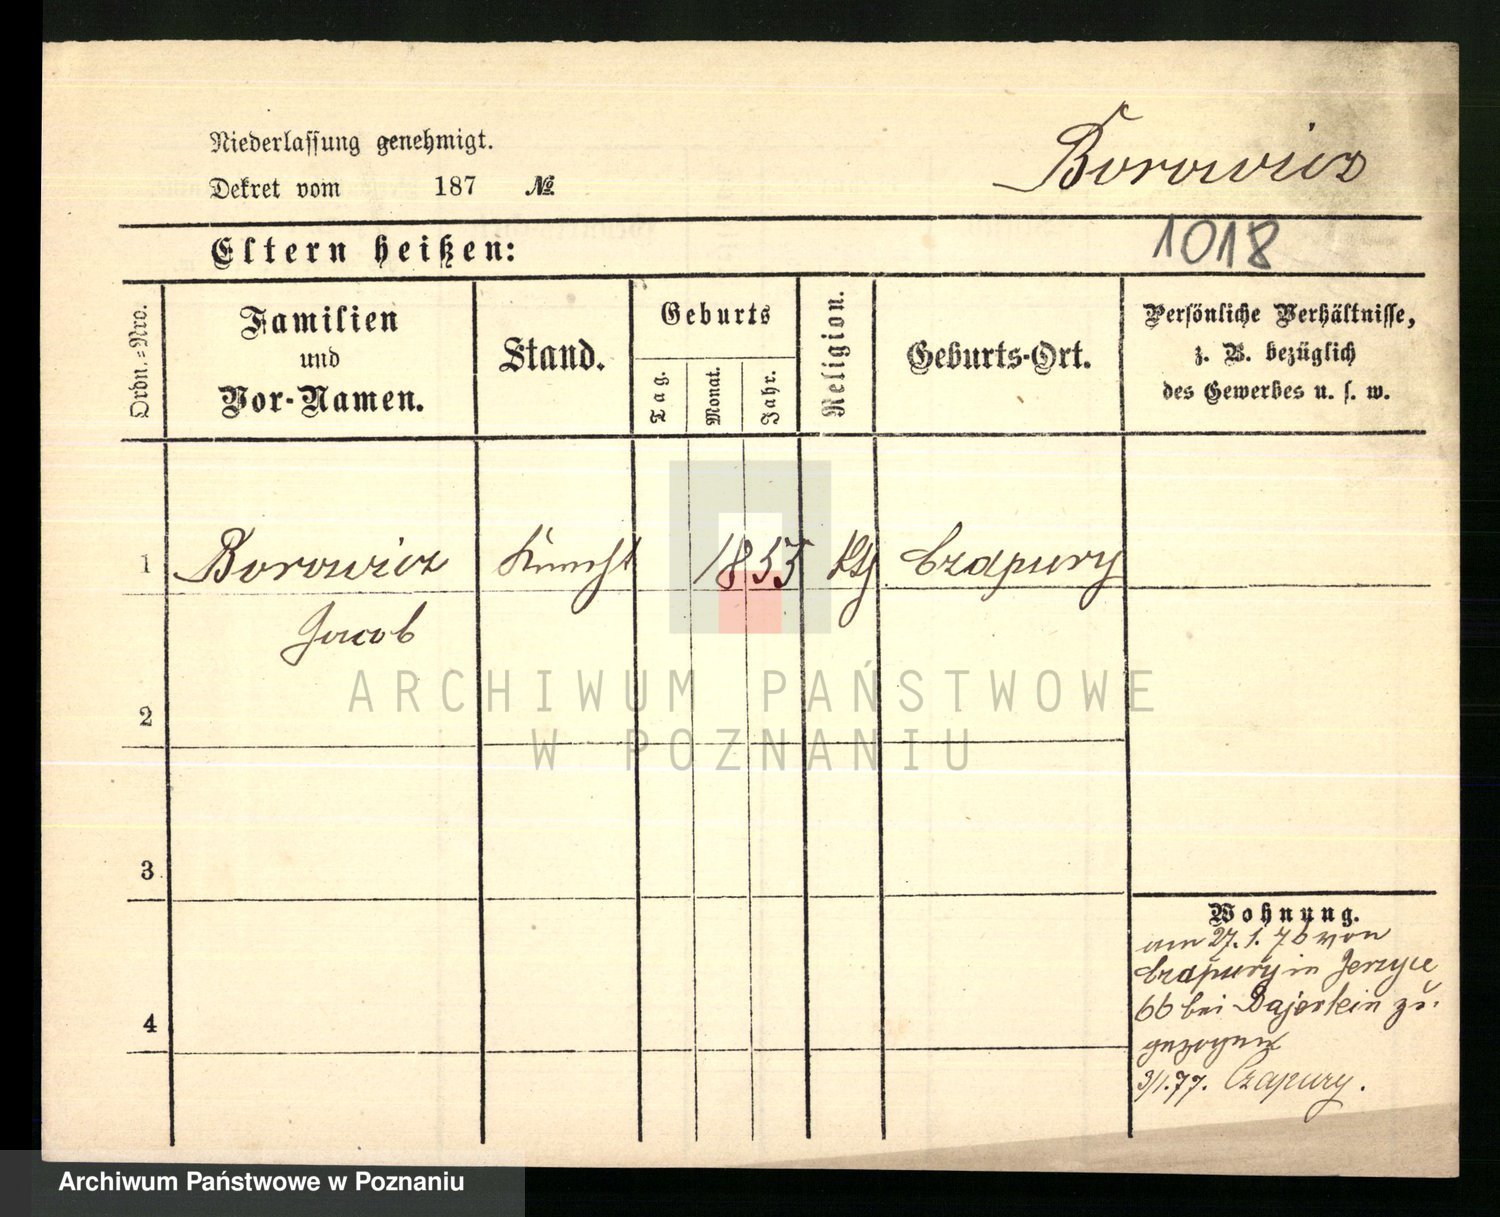 Niederlassung genehmigt.
Borowicz
Dekret vom 187 №
Eltern heißen:
1018
Ordn.=Nro.
Familien
und
Vor-Namen.
Stand.
Geburts
Tag.
Monat.
Jahr.
Religion.
Geburts-Ort.
Persönliche Verhältnisse,
z. B. bezüglich
des Gewerbes u. s. w.
1 Borowicz Knecht 1855 kth Czapury
Jacob
ARCHIWUM PAŃSTWOWE
W POZNANIU
2
3
4
Wohnung.
am 27.1.76 von
Czapury in Jerzyce
66 bei Bajerlein zu-
gezogen
3/1.77. Czapury.
Archiwum Państwowe w Poznaniu